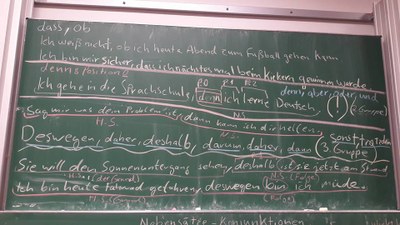 dass, ob
Ich weiß nicht, ob ich heute Abend zum Fußball gehen kann
Ich bin mir sicher, dass ich nächstes mal beim Kickern gewinnen würde
denn → Position 0
P0 P1 P2
Ich gehe in die Sprachschule, denn ich lerne Deutsch.
denn, aber, oder, und
Sag mir was dein Problem ist, dann kann ich dir helfen.
H.S N.S
Deswegen, daher, deshalb, darum, daher, dann
sonst, trotzdem
3. Gruppe
Sie will den Sonnenuntergang sehen, deshalb ist sie jetzt am Strand
H.S. (Grund) N.S (Folge)
Ich bin heute Fahrrad gefahren, deswegen bin ich müde.
H.S (Grund) (Folge)
Nebensätze - Konjunktionen